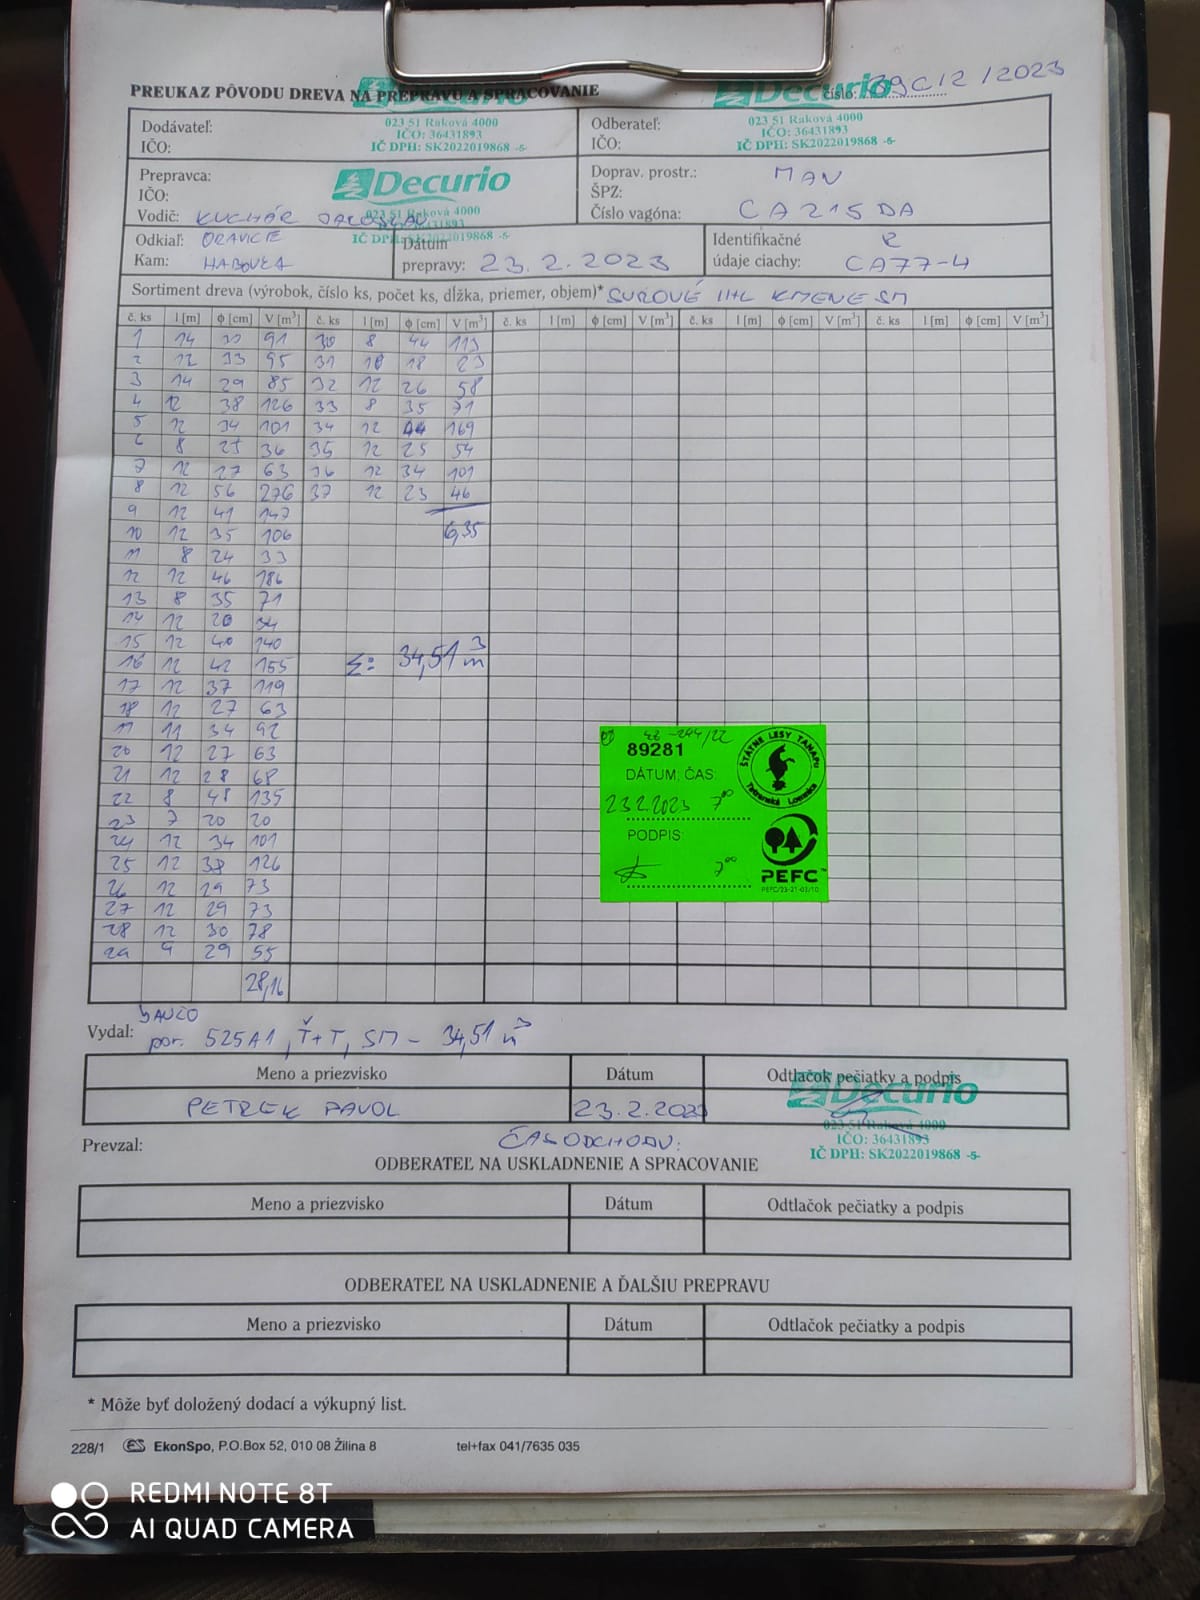 PREUKAZ PÔVODU DREVA NA PREPRAVU A SPRACOVANIE
Číslo: 39C12/2023
Decurio
Decurio
Dodávateľ:
IČO:
023 51 Raková 4000
IČO: 36431893
IČ DPH: SK2022019868 -5-
Odberateľ:
IČO:
023 51 Raková 4000
IČO: 36431893
IČ DPH: SK2022019868 -5-
Prepravca:
IČO:
Vodič: KUCHÁR JAROSLAV
Decurio
023 51 Raková 4000
IČ DPH: SK2022019868 -5-
Doprav. prostr.: MAN
ŠPZ:
Číslo vagóna: CA215DA
Odkiaľ: ORAVICE
Kam: HABOVKA
Dátum
prepravy: 23.2.2023
Identifikačné
údaje ciachy: CA77-4
Sortiment dreva (výrobok, číslo ks, počet ks, dĺžka, priemer, objem)* SUROVÉ IHL KMENE SM
č. ks l [m] ϕ [cm] V [m³] č. ks l [m] ϕ [cm] V [m³] č. ks l [m] ϕ [cm] V [m³] č. ks l [m] ϕ [cm] V [m³] č. ks l [m] ϕ [cm] V [m³]
1 14 30 91 30 8 44 113
2 12 33 95 31 10 18 23
3 14 29 85 32 12 26 58
4 12 38 126 33 8 35 71
5 12 34 101 34 12 44 169
6 8 25 36 35 12 25 54
7 12 27 63 36 12 34 101
8 12 56 276 37 12 23 46
9 12 41 147
10 12 35 106 6,35
11 8 24 33
12 12 46 186
13 8 35 71
14 12 20 34
15 12 40 140
16 12 42 155 Σ: 34,51 m³
17 12 37 119
18 12 27 63
19 11 34 92
20 12 27 63
21 12 28 68
22 8 48 135
23 7 20 20
24 12 34 101
25 12 38 126
26 12 29 73
27 12 29 73
28 12 30 78
29 9 29 55
28,16
89281
DÁTUM, ČAS:
23.2.2023 7⁰⁰
PODPIS:
7⁰⁰
ŠTÁTNE LESY TANAPu
Tatranská Lomnica
PEFC™
PEFC/23-21-03/10
Vydal:
por. 525A1, Ť+T, SM - 34,51 m³
Meno a priezvisko Dátum Odtlačok pečiatky a podpis
PETREK PAVOL 23.2.2023
Decurio
023 51 Raková 4000
IČO: 36431893
IČ DPH: SK2022019868 -5-
Prevzal: ČAS ODCHODU:
ODBERATEĽ NA USKLADNENIE A SPRACOVANIE
Meno a priezvisko Dátum Odtlačok pečiatky a podpis
ODBERATEĽ NA USKLADNENIE A ĎALŠIU PREPRAVU
Meno a priezvisko Dátum Odtlačok pečiatky a podpis
* Môže byť doložený dodací a výkupný list.
228/1 ES EkonSpo, P.O.Box 52, 010 08 Žilina 8 tel+fax 041/7635 035
REDMI NOTE 8T
AI QUAD CAMERA